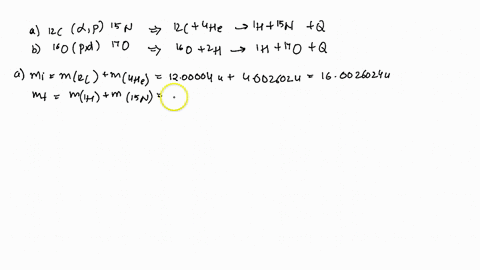 a) 12C (α,p) 15N ⇒ 12C + 4He → 1H + 15N + Q
b) 16O (p,d) 17O ⇒ 16O + 2H → 1H + 17O + Q
a) mi = m(12C) + m(4He) = 12.00004u + 4.002602u = 16.0026024u
mf = m(1H) + m(15N) =